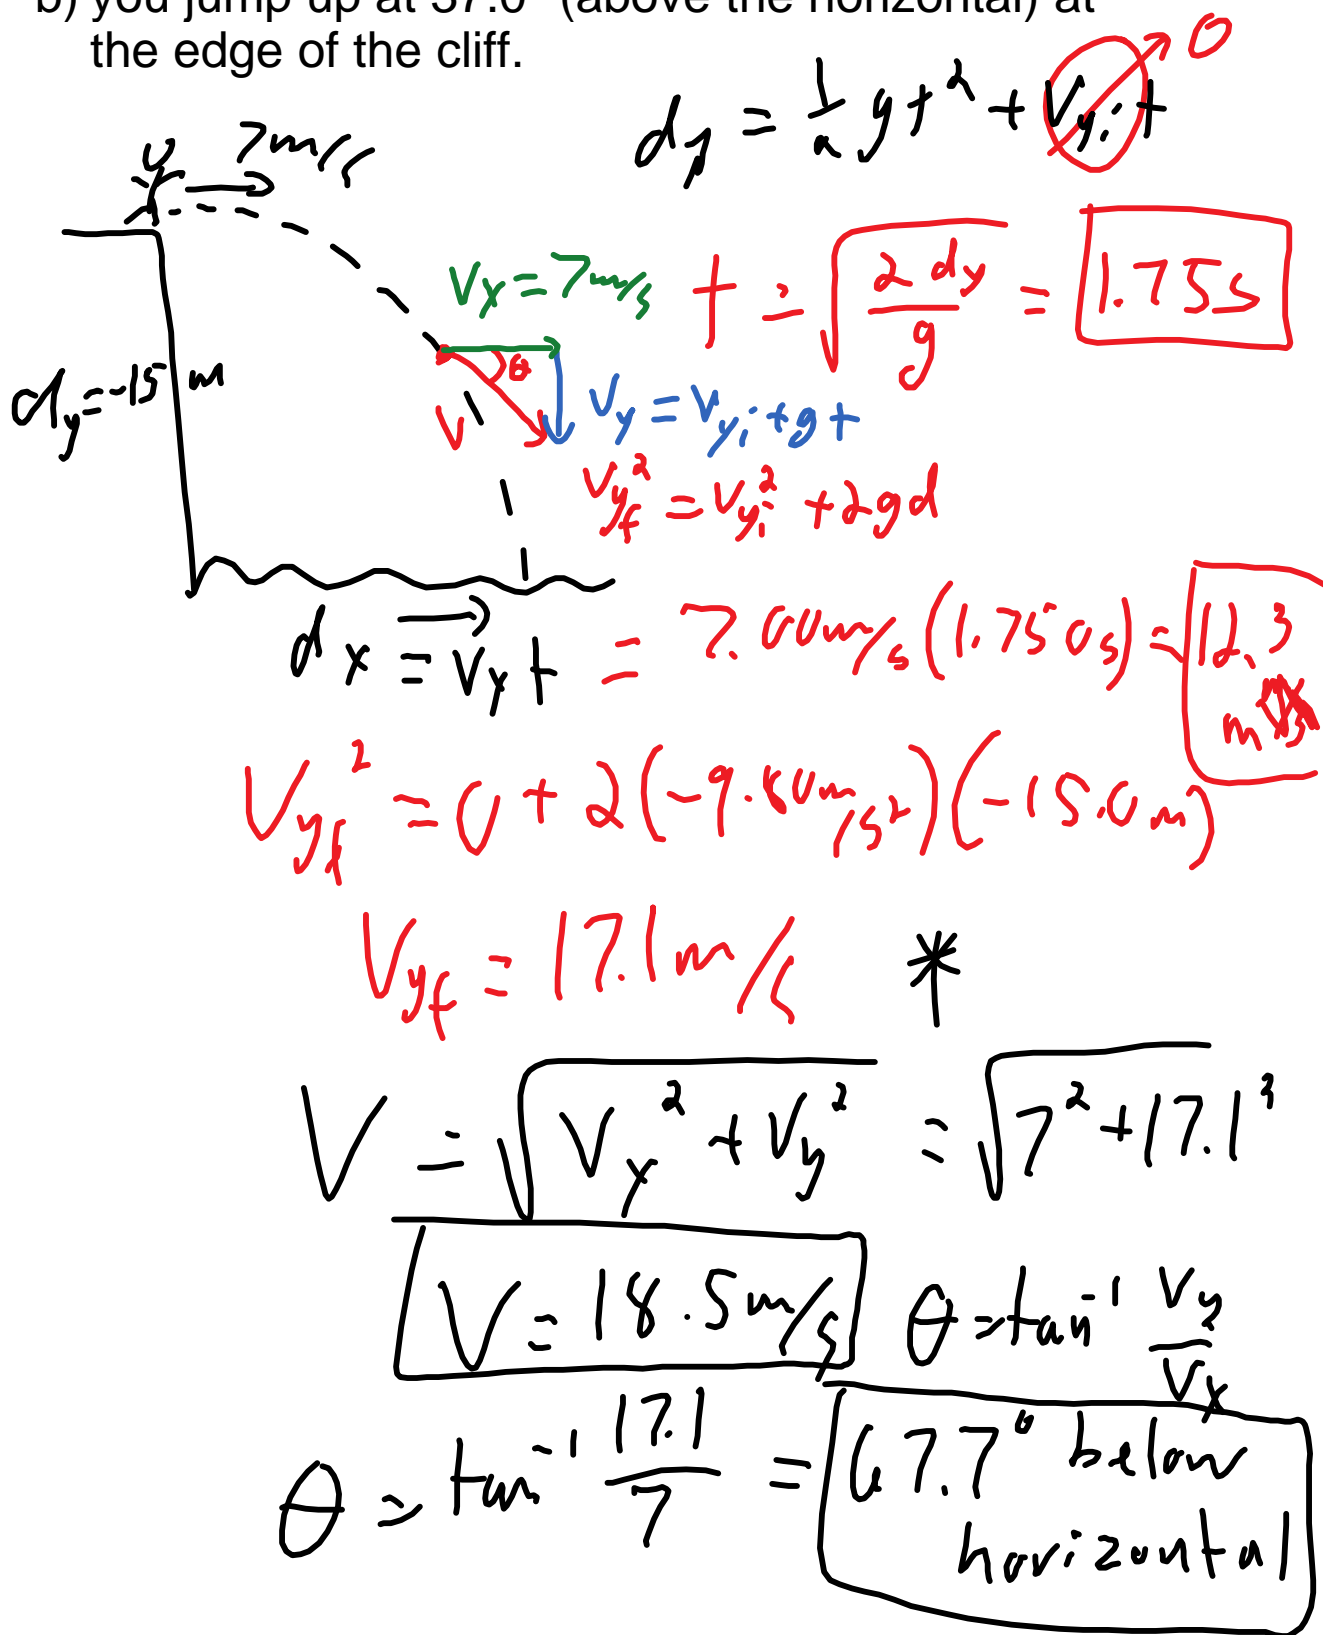 b) you jump up at 37.0° (above the horizontal) at
the edge of the cliff.
d_y = 1/2 g t² + V_yi t → 0
7m/s
V_x = 7m/s
t = √(2 d_y / g) = 1.75s
θ
d_y = -15 m
V
V_y = V_yi + g t
V_yf² = V_yi² + 2gd
d_x = V_x t = 7.00m/s (1.750s) = 12.3 m
V_yf² = 0 + 2(-9.80m/s²)(-15.0m)
V_yf = 17.1m/s *
V = √(V_x² + V_y²) = √(7² + 17.1²)
V = 18.5m/s θ = tan⁻¹ V_y/V_x
θ = tan⁻¹ 17.1/7 = 67.7° below
horizontal